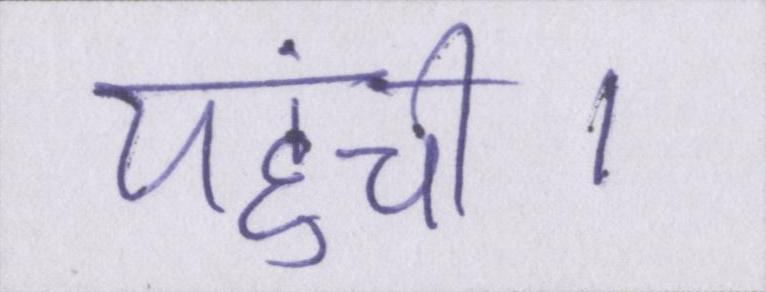 पहुंची।